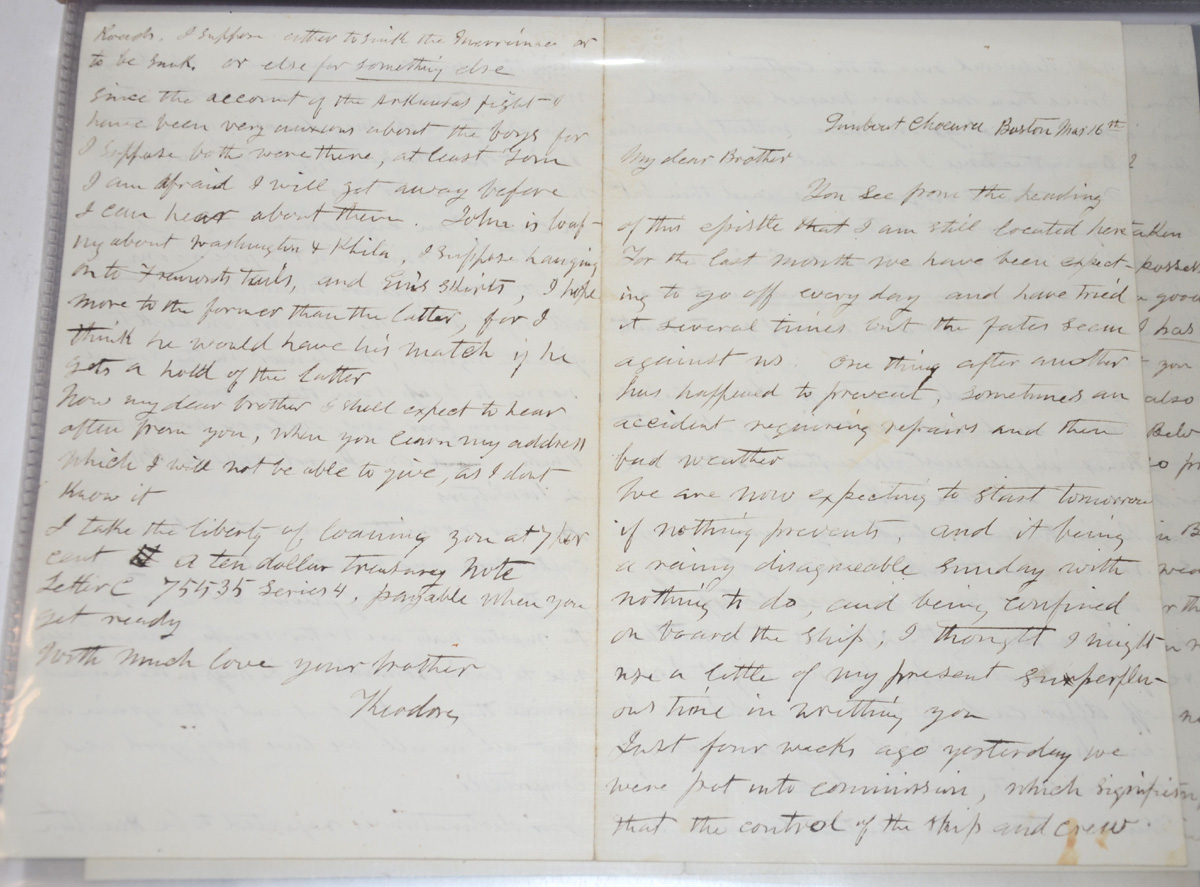 Gunboat Chocura Boston Mar 16th
My dear Brother
You see from the heading
of this epistle that I am still located here
For the last month we have been expect-
ing to go off every day and have tried
it several times but the fates seem
against us. One thing after another
has happened to prevent, sometimes an
accident requiring repairs and then
bad weather
We are now expecting to start tomorrow
if nothing prevents, and it being
a rainy disagreeable Sunday with
nothing to do, and being confined
on board the ship, I thought I might
use a little of my present superflu-
ous time in writting you
Just four weeks ago yesterday we
were put into commission, which signifies,
that the control of the ship and crew
Roads. I suppose either to sink the Merrimac or
to be sunk or else for something else
Since the account of the Arkansas fight I
have been very anxious about the boys for
I suppose both were there, at least
I am afraid I will get away before
I can hear about them. John is loaf-
ing about Washington & Phila, I suppose hanging
on to tails, and skirts, I hope
more to the former than the latter, for I
think he would have his match if he
gets a hold of the latter
Now my dear brother I shall expect to hear
often from you, when you learn my address
which I will not be able to give, as I dont
know it
I take the liberty of loaning you at 7 per
cent a ten dollar treasury note
Letter C 75535 Series 4, payable when you
get ready
With much love your brother
Theodore
2
taken
good
I has
you
also